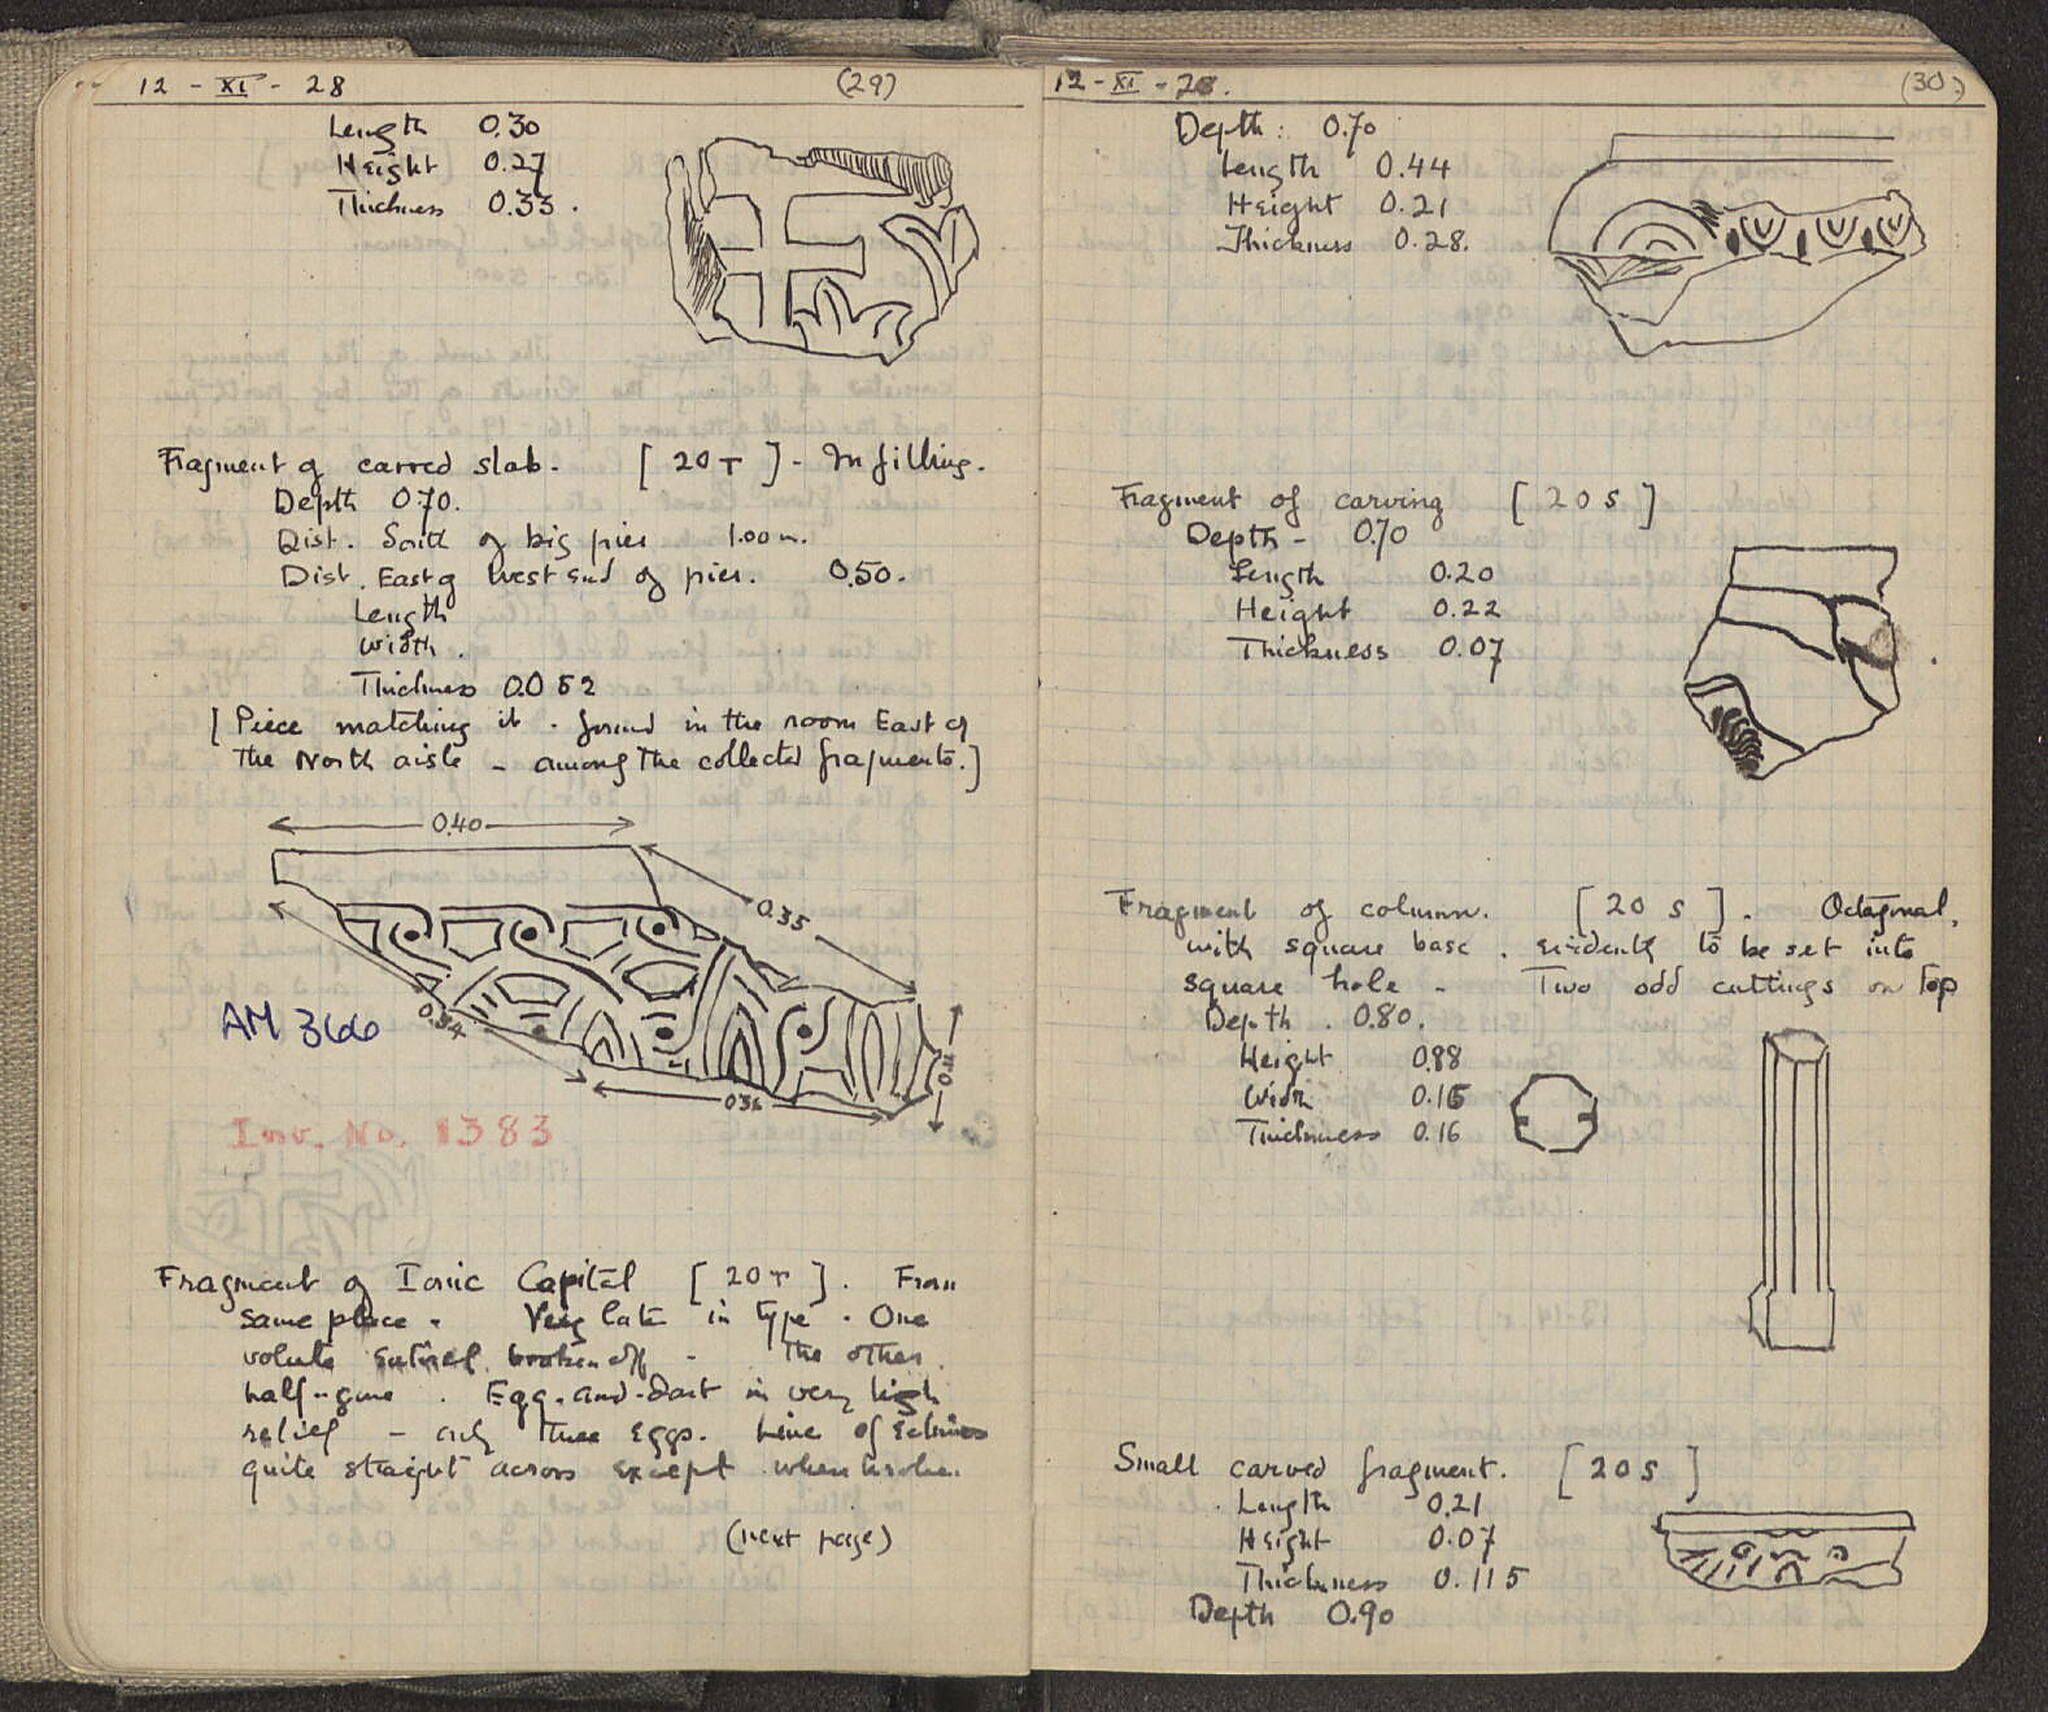 12 - XI - 28 (29)
Length 0.30
Height 0.27
Thickness 0.33.
Fragment of carved slab. [20T] - In filling.
Depth 0.70.
Dist. South of big pier 1.00 m.
Dist. East of West end of pier. 0.50.
Length
Width.
Thickness 0.052
[Piece matching it - found in the room East of
the North aisle - among the collected fragments.]
0.40
0.35
0.54
0.36
AM 366
Inv. No. 1383
Fragment of Ionic Capital [20T]. From
same place. Very late in type. One
volute entirel. broken off - the other
half-gone. Egg-and-dart in very high
relief - only three eggs. Line of echinus
quite straight across except when broke.
(next page)
12 - XI - 28. (30)
Depth: 0.70
Length 0.44
Height 0.21
Thickness 0.28.
Fragment of carving [20 S]
Depth - 0.70
Length 0.20
Height 0.22
Thickness 0.07
Fragment of column. [20 S]. Octagonal,
with square base. evidently to be set into
square hole - Two odd cuttings on top
Depth. 0.80.
Height 0.88
Width 0.16
Thickness 0.16
Small carved fragment. [20 S]
Length 0.21
Height 0.07
Thickness 0.115
Depth 0.90